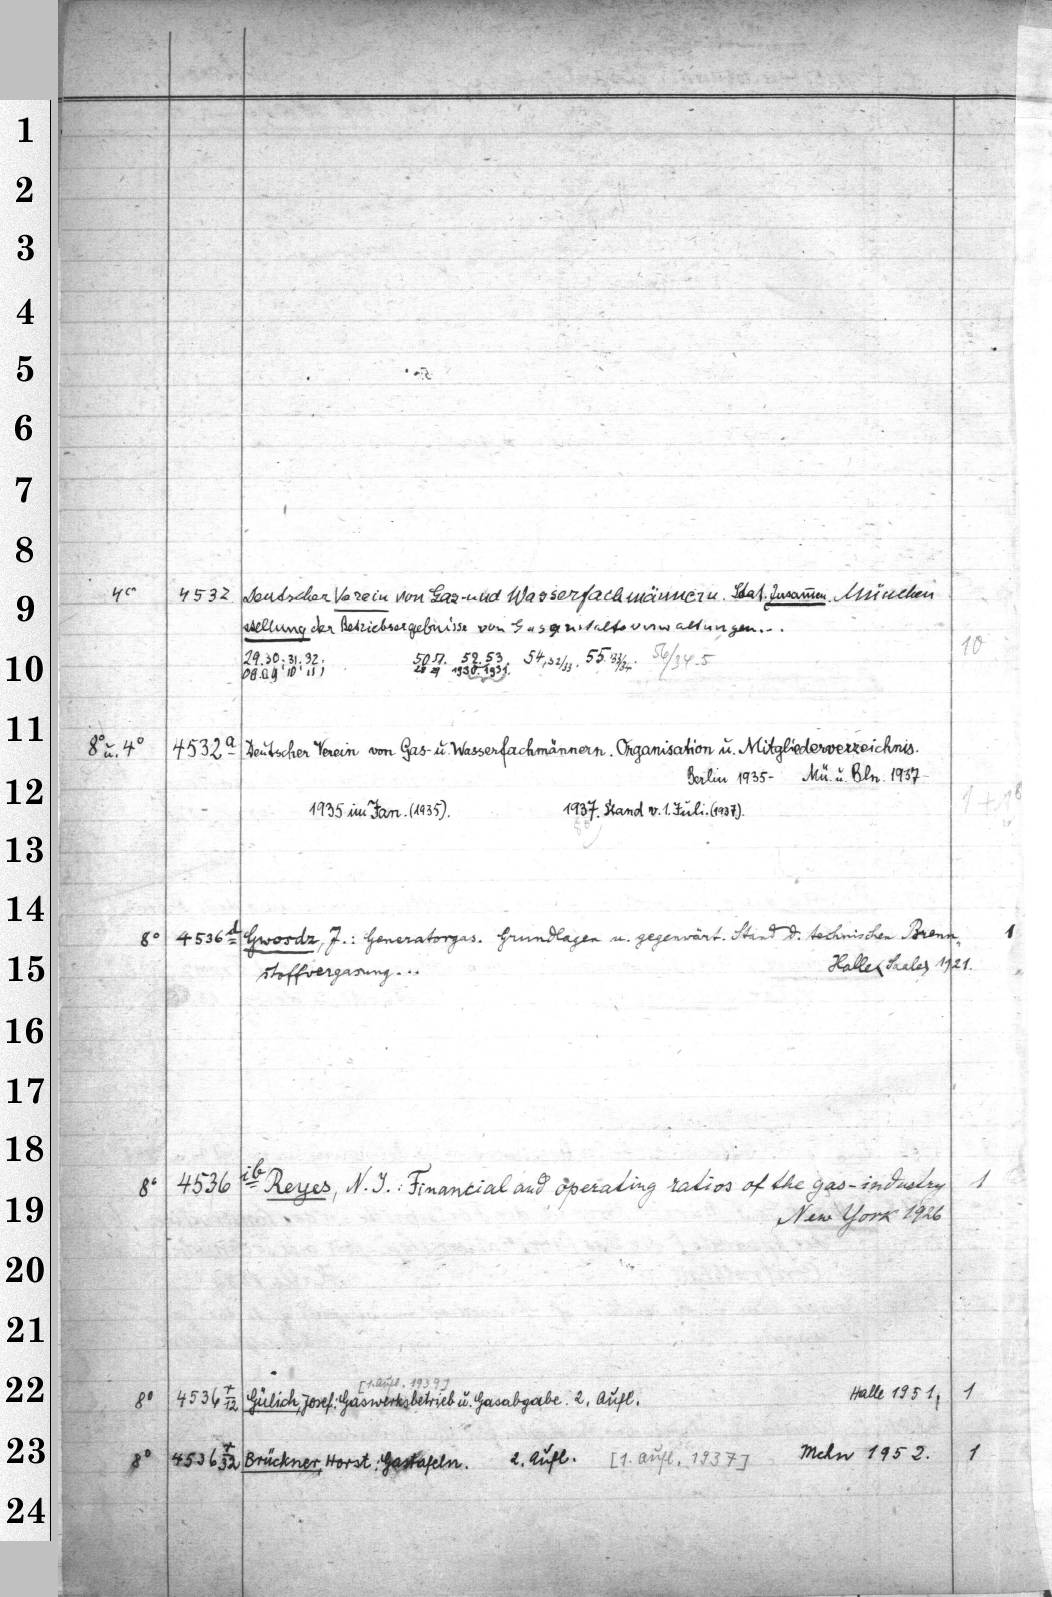 1
2
3
4
5
6
7
8
4° 4532 Deutscher Verein von Gas- und Wasserfachmännern. Stat. Zusammen München
9
stellung der Betriebsergebnisse von Gasanstaltsverwaltungen...
10
29. 30. 31. 32. 50 51. 52. 53. 54, 32/33. 55. 33/34. 56/34.5 10
08. 09 10 11 1930. 1931.
11
8° u. 4° 4532a Deutscher Verein von Gas- u. Wasserfachmännern. Organisation u. Mitgliederverzeichnis.
Berlin 1935- Mü. u. Bln. 1937-
12
1935 im Jan. (1935). 1937. Stand v. 1. Juli. (1937).
13
14
8° 4536d Gwosdz, J.: Generatorgas. Grundlagen u. gegenwärt. Stand d. technischen Brenn- 1
15
stoffvergasung... Halle (Saale) 1921.
16
17
18
8° 4536ib Reyes, N. J.: Financial and operating ratios of the gas-industry 1
19
New York 1926
20
21
[1. Aufl. 1939]
22
8° 4536 +/12 Gülich, Josef: Gaswerksbetrieb u. Gasabgabe. 2. Aufl. Halle 1951, 1
23
8° 4536 +/32 Brückner, Horst: Gastafeln. 2. Aufl. [1. Aufl. 1937] Mchn 1952. 1
24